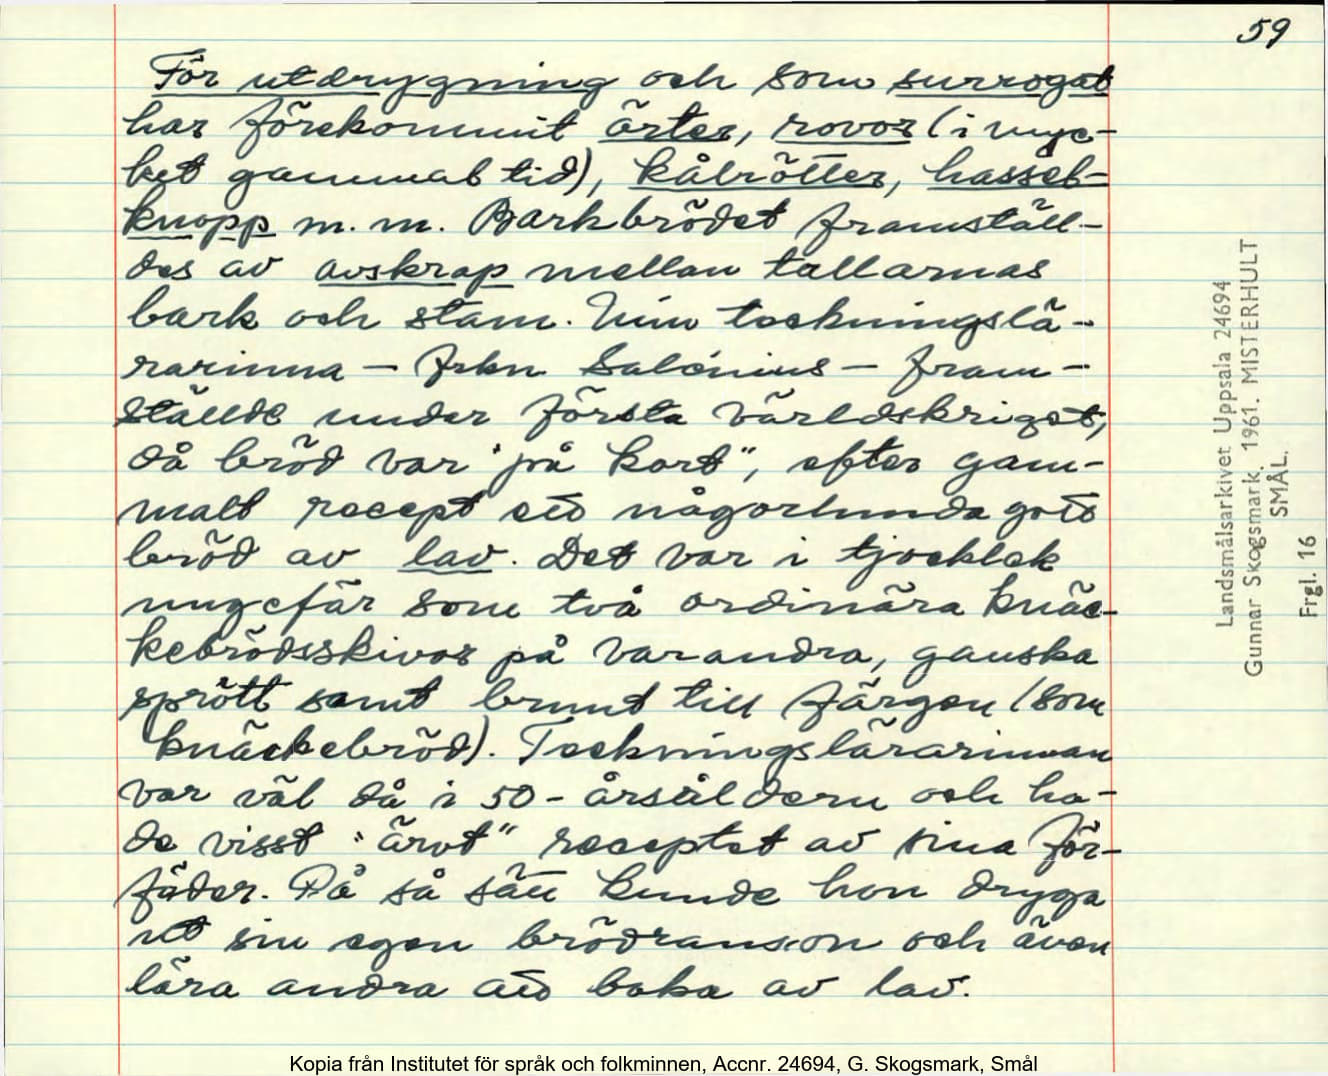 59
För utdrygning och som surrogat
har förekommit ärter, rovor (i myc-
ket gammal tid), kålrötter, hassel-
knopp m. m. Barkbrödet framställ-
des av avskrap mellan tallarnas
bark och stam. Min teckningslä-
rarinna – frkn Salénius – fram-
ställde under första världskriget,
då bröd var "på kort", efter gam-
malt recept ett någorlunda gott
bröd av lav. Det var i tjocklek
ungefär som två ordinära knäc-
kebrödsskivor på varandra, ganska
sprött samt brunt till färgen (som
knäckebröd). Teckningslärarinnan
var väl då i 50-årsåldern och ha-
de visst "ärvt" receptet av sina för-
fäder. På så sätt kunde hon dryga
ut sin egen brödranson och även
lära andra att baka av lav.
Landsmålsarkivet Uppsala 24694
Gunnar Skogsmark. 1961. MISTERHULT
SMÅL.
Frgl. 16
Kopia från Institutet för språk och folkminnen, Accnr. 24694, G. Skogsmark, Smål